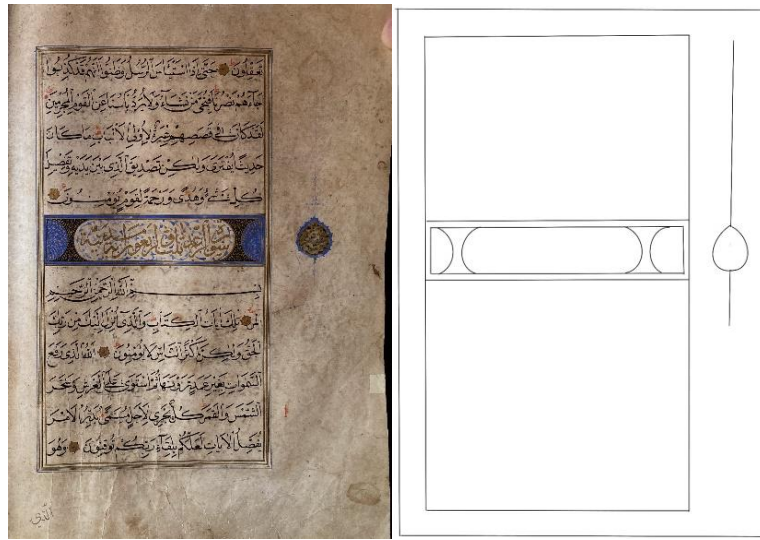 تَعْقِلُونَ حَتَّىٰ إِذَا اسْتَيْأَسَ الرُّسُلُ وَظَنُّوا أَنَّهُمْ قَدْ كُذِبُوا
جَاءَهُمْ نَصْرُنَا فَنُجِّيَ مَنْ نَشَاءُ وَلَا يُرَدُّ بَأْسُنَا عَنِ الْقَوْمِ الْمُجْرِمِينَ
لَقَدْ كَانَ فِي قَصَصِهِمْ عِبْرَةٌ لِأُولِي الْأَلْبَابِ مَا كَانَ
حَدِيثًا يُفْتَرَىٰ وَلَٰكِنْ تَصْدِيقَ الَّذِي بَيْنَ يَدَيْهِ وَتَفْصِيلَ
كُلِّ شَيْءٍ وَهُدًى وَرَحْمَةً لِقَوْمٍ يُؤْمِنُونَ
سورة الرعد اربعون اية مدنية
بِسْمِ اللَّهِ الرَّحْمَٰنِ الرَّحِيمِ
المر تِلْكَ آيَاتُ الْكِتَابِ وَالَّذِي أُنْزِلَ إِلَيْكَ مِنْ رَبِّكَ
الْحَقُّ وَلَٰكِنَّ أَكْثَرَ النَّاسِ لَا يُؤْمِنُونَ اللَّهُ الَّذِي رَفَعَ
السَّمَوَاتِ بِغَيْرِ عَمَدٍ تَرَوْنَهَا ثُمَّ اسْتَوَىٰ عَلَى الْعَرْشِ وَسَخَّرَ
الشَّمْسَ وَالْقَمَرَ كُلٌّ يَجْرِي لِأَجَلٍ مُسَمًّى يُدَبِّرُ الْأَمْرَ
يُفَصِّلُ الْآيَاتِ لَعَلَّكُمْ بِلِقَاءِ رَبِّكُمْ تُوقِنُونَ وَهُوَ
الَّذِي